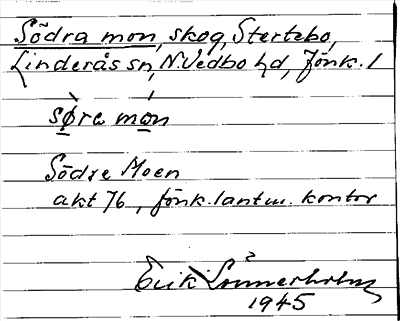 Södra mon, skog, Stertebo,
Linderås sn, N. Vedbo hd, Jönk. l
sø̀re món
Södre Moen
akt 76, Jönk. lantm. kontor
Erik Lönnerholm
1945